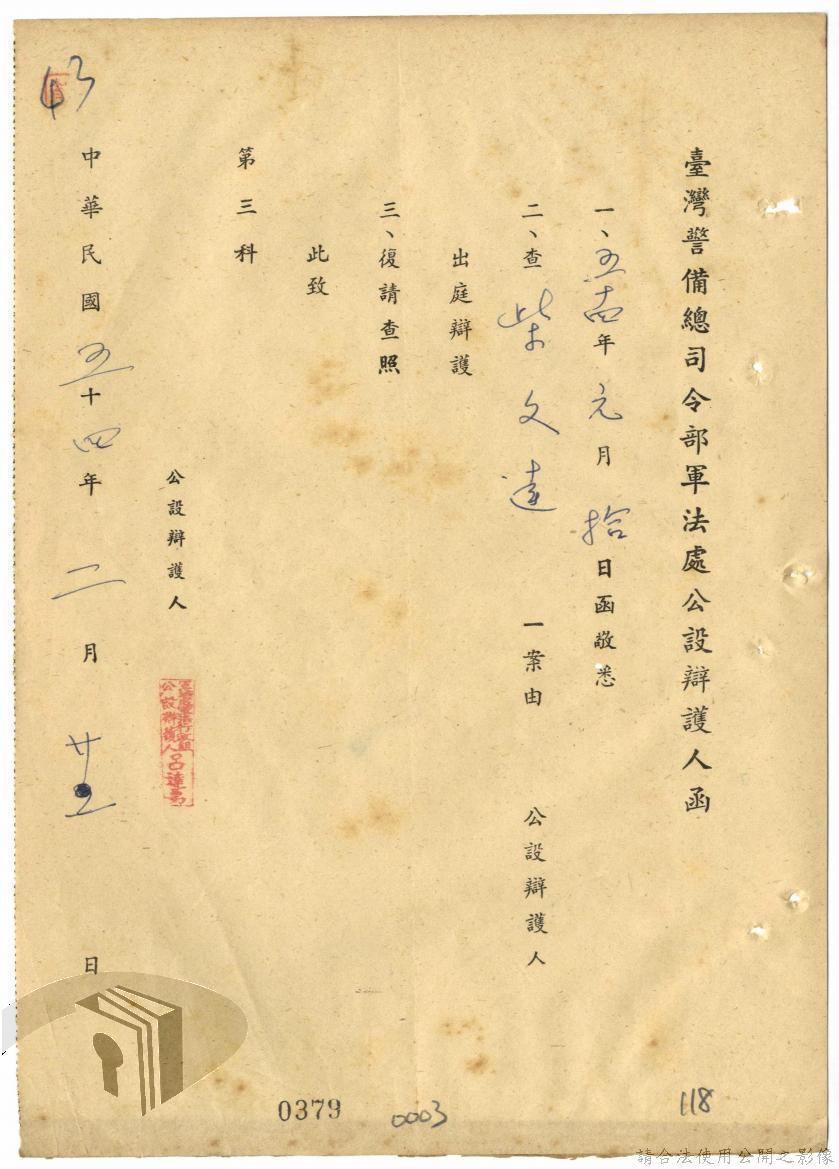 臺灣警備總司令部軍法處公設辯護人函
一、五十四年元月拾日函敬悉
二、查柴文達一案由公設辯護人
出庭辯護
三、復請查照
此致
第三科
公設辯護人
公設辯護人呂達高
中華民國五十四年二月廿五日
43
118
0003
0379
請合法使用公開之影像